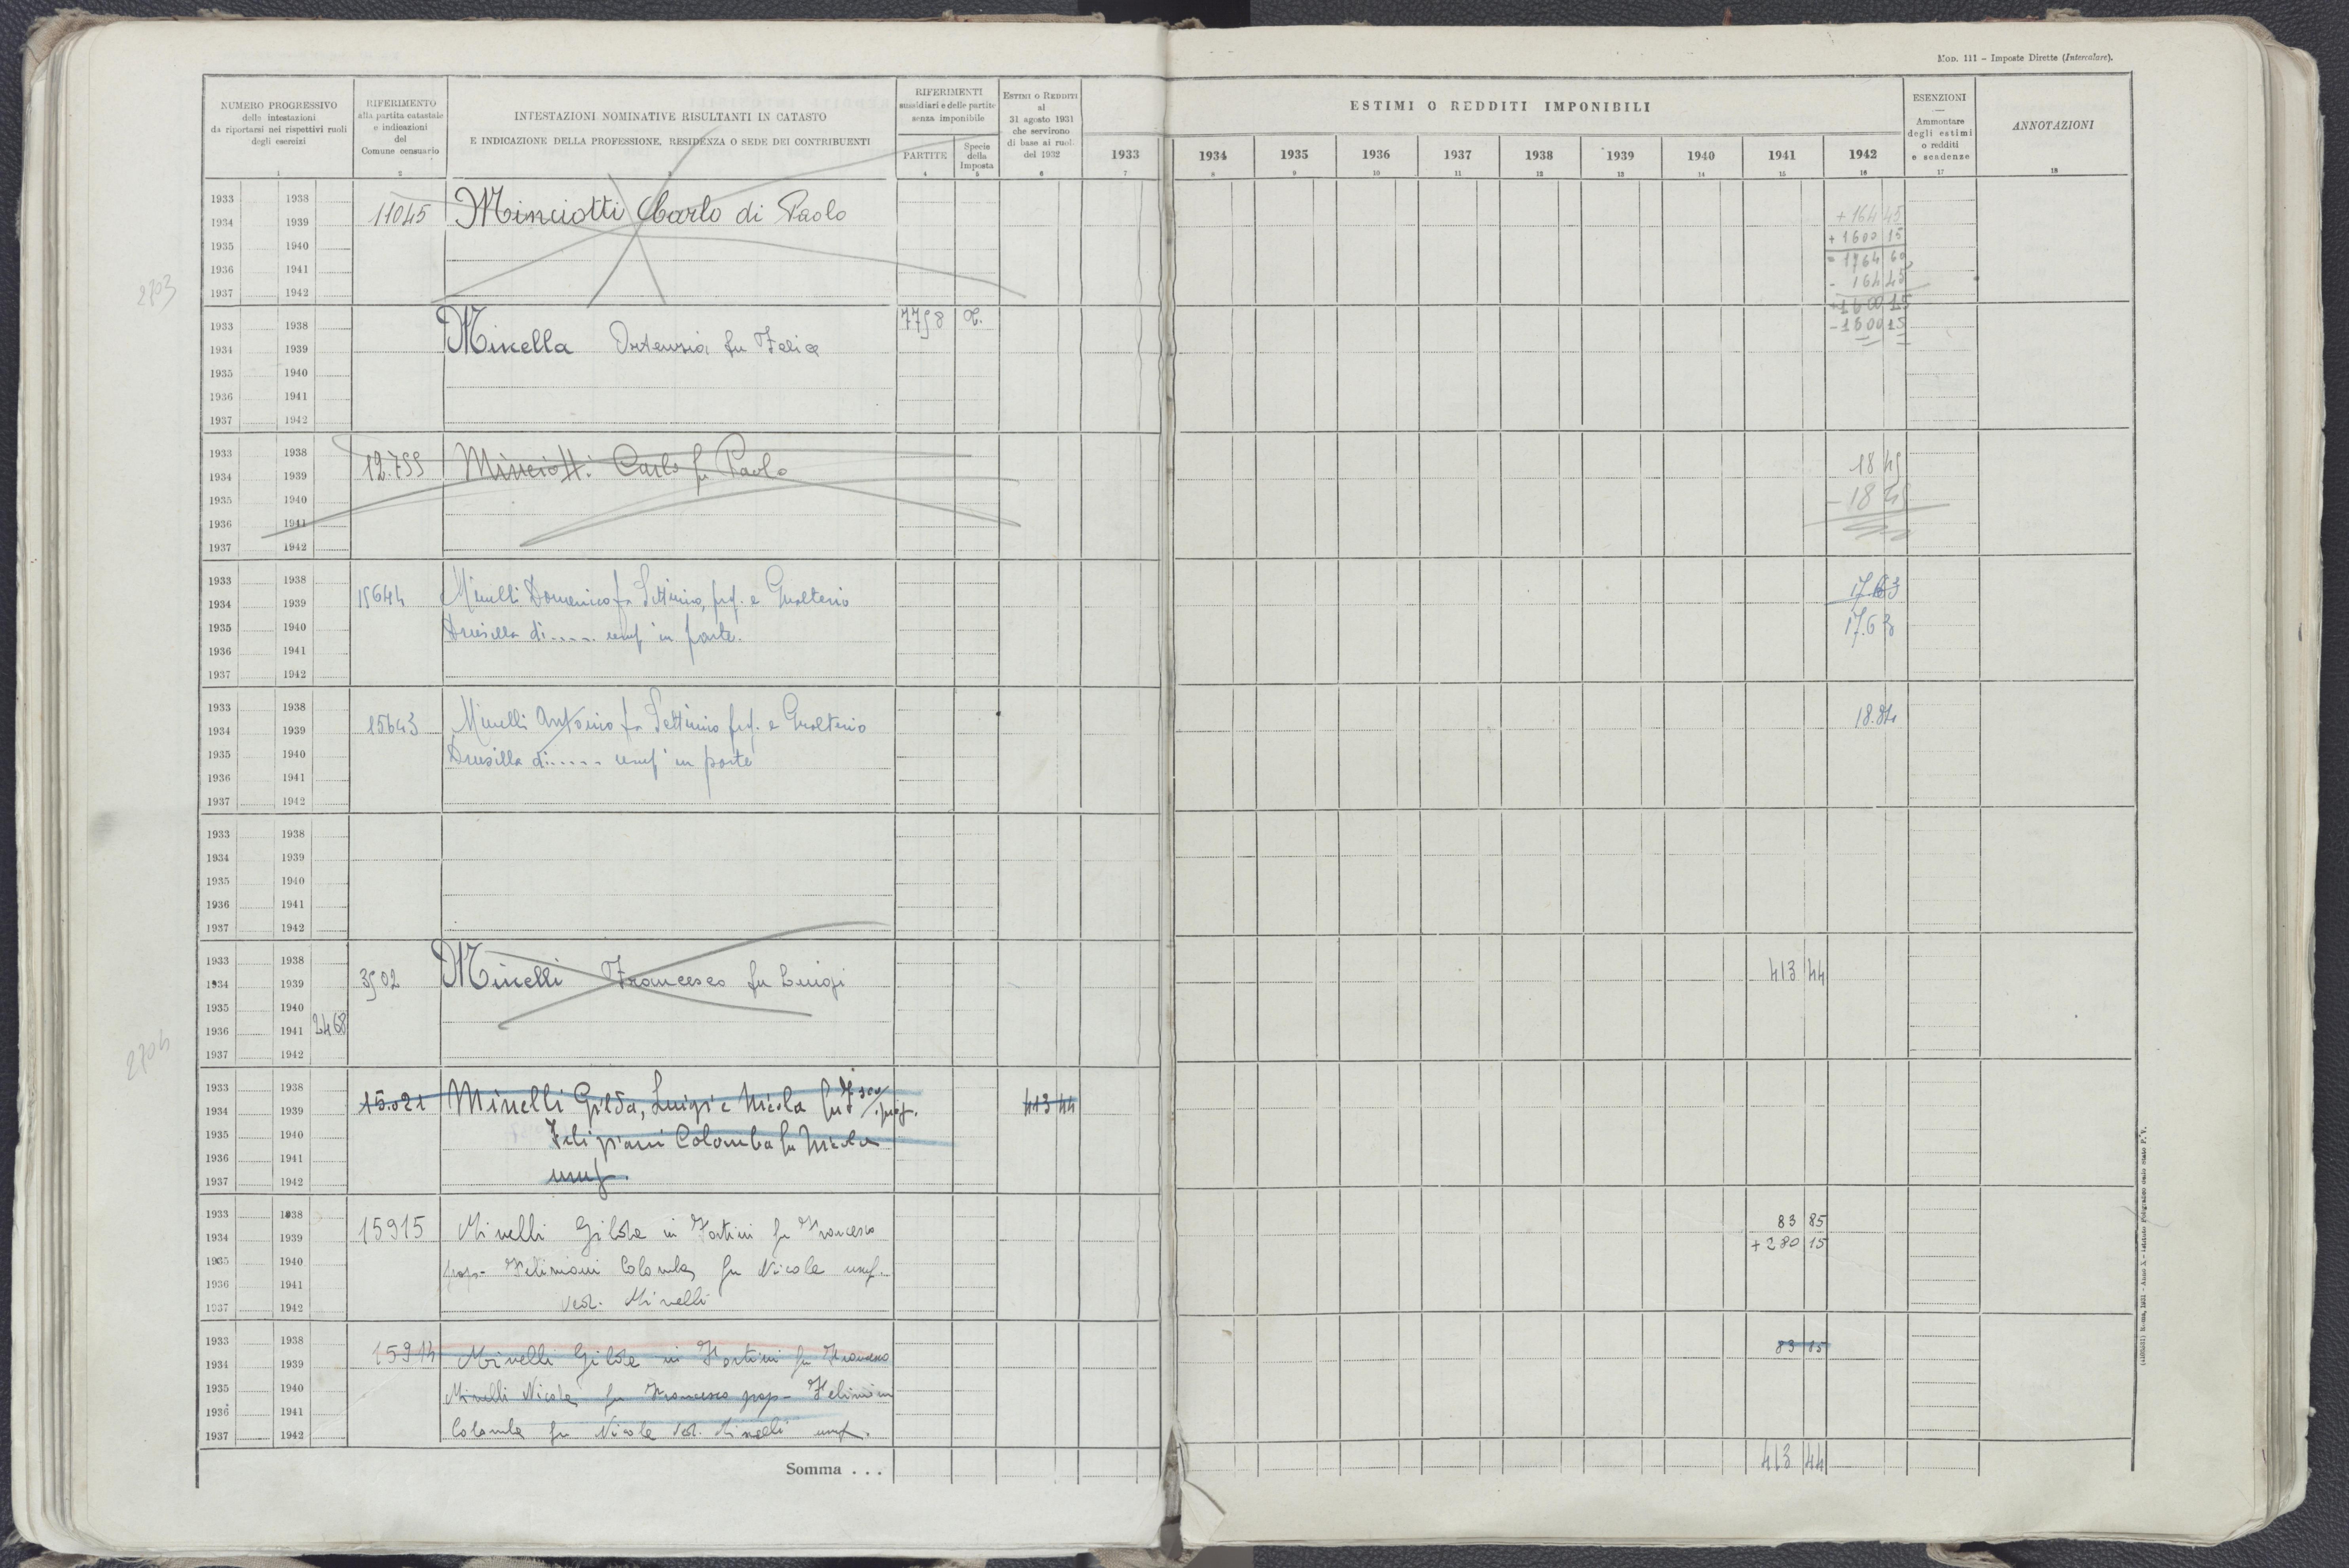 MOD. 111 – Imposte Dirette (Intercalare).
NUMERO PROGRESSIVO
delle intestazioni
da riportarsi nei rispettivi ruoli
degli esercizi
RIFERIMENTO
alla partita catastale
e indicazioni
del
Comune censuario
INTESTAZIONI NOMINATIVE RISULTANTI IN CATASTO
E INDICAZIONE DELLA PROFESSIONE, RESIDENZA O SEDE DEI CONTRIBUENTI
RIFERIMENTI
sussidiari e delle partite
senza imponibile
PARTITE
Specie
della
Imposta
ESTIMI O REDDITI
al
31 agosto 1931
che servirono
di base ai ruoli
del 1932
ESTIMI O REDDITI IMPONIBILI
1933 1934 1935 1936 1937 1938 1939 1940 1941 1942
ESENZIONI
—
Ammontare
degli estimi
o redditi
e scadenze
ANNOTAZIONI
1 2 3 4 5 6 7 8 9 10 11 12 13 14 15 16 17 18
1933 1938
1934 1939 11045 Minciotti Carlo di Paolo + 164 45
1935 1940 + 1600 15
1936 1941 = 1764 60
2703
1937 1942 - 164 45
+1600 15
1933 1938 7758 - 1600 15
1934 1939 Minella Ortensia fu Felice
1935 1940
1936 1941
1937 1942
1933 1938 12.799 Minciotti Carlo fu Paolo 18 45
1934 1939
1935 1940 - 18 45
1936 1941
1937 1942
1933 1938
1934 1939 15644 Minelli Domenico fu Settimio, prop. e Gualterio 17.63
1935 1940 Drusilla di..... usuf in parte. 17.63
1936 1941
1937 1942
1933 1938
1934 1939 15643 Minelli Antonio fu Settimio prop. e Gualterio 18.84
1935 1940 Drusilla di..... usuf in parte
1936 1941
1937 1942
1933 1938
1934 1939
1935 1940
1936 1941
1937 1942
1933 1938
1934 1939 3502 Minelli Francesco fu Luigi 413 44
1935 1940
1936 1941 2468
1937 1942
2704
1933 1938
1934 1939 15.021 Minelli Gilda, Luigi e Nicola fu prop. 413 44
1935 1940 Feliziani Colomba fu Nicola
1936 1941
1937 1942 usuf.
1933 1938 83 85
1934 1939 15915 Minelli Gilda in Fortini fu Francesco + 280 15
1935 1940 prop- Felimiani Colomba fu Nicola usuf.
1936 1941
1937 1942 ved. Minelli
1933 1938 83 15
1934 1939 15914 Minelli Gilda in Fortini fu Francesco
1935 1940 Minelli Nicola fu Francesco prop- Felimiani
1936 1941
1937 1942 Colomba fu Nicola ved. Minelli usuf.
Somma . . . 413 44